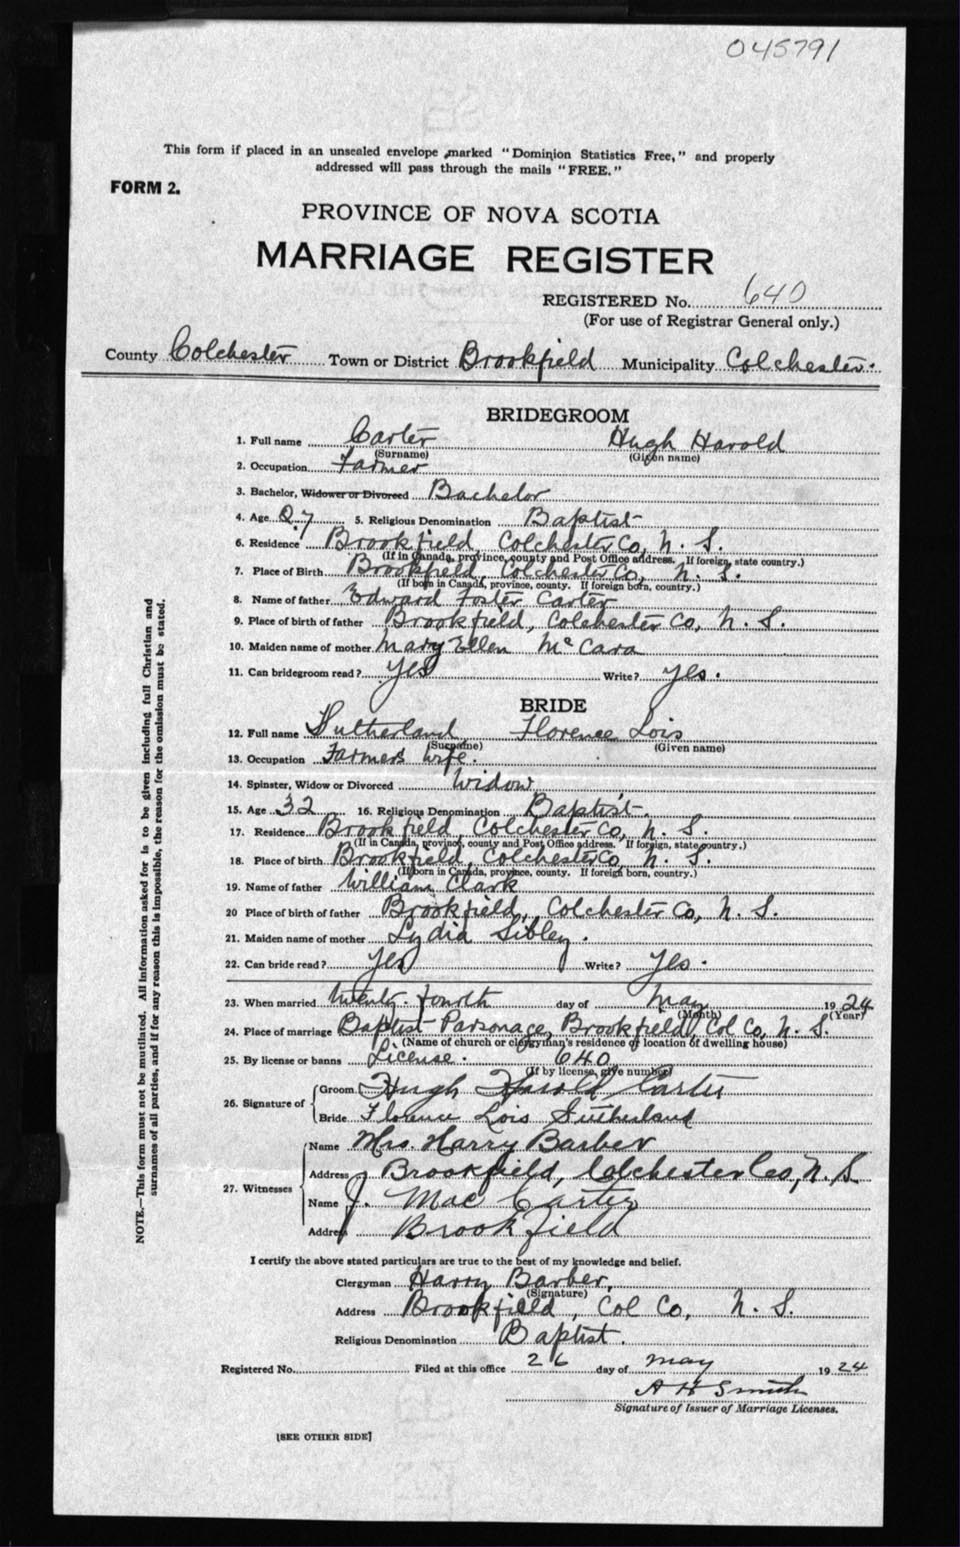 045791
This form if placed in an unsealed envelope marked "Dominion Statistics Free," and properly
addressed will pass through the mails "FREE."
FORM 2.
PROVINCE OF NOVA SCOTIA
MARRIAGE REGISTER
REGISTERED No. 640
(For use of Registrar General only.)
County Colchester Town or District Brookfield Municipality Colchester.
BRIDEGROOM
1. Full name Carter Hugh Harold
(Surname) (Given name)
2. Occupation Farmer
3. Bachelor, Widower or Divorced Bachelor
4. Age 27 5. Religious Denomination Baptist
6. Residence Brookfield, Colchester Co, N. S.
(If in Canada, province, county and Post Office address. If foreign, state country.)
7. Place of Birth Brookfield, Colchester Co, N. S.
(If born in Canada, province, county. If foreign born, country.)
8. Name of father Edward Foster Carter
9. Place of birth of father Brookfield, Colchester Co, N. S.
10. Maiden name of mother Mary Ellen McCara
11. Can bridegroom read? Yes Write? Yes.
BRIDE
12. Full name Sutherland Florence Lois
(Surname) (Given name)
13. Occupation Farmer's Wife.
14. Spinster, Widow or Divorced Widow
15. Age 32 16. Religious Denomination Baptist.
17. Residence Brookfield, Colchester Co, N. S.
(If in Canada, province, county and Post Office address. If foreign, state country.)
18. Place of birth Brookfield, Colchester Co, N. S.
(If born in Canada, province, county. If foreign born, country.)
19. Name of father William Clark
20 Place of birth of father Brookfield, Colchester Co, N. S.
21. Maiden name of mother Lydia Sibley.
22. Can bride read? Yes Write? Yes.
23. When married twenty-fourth day of May 1924
(Month) (Year)
24. Place of marriage Baptist Parsonage, Brookfield, Col Co, N. S.
(Name of church or clergyman's residence or location of dwelling house)
25. By license or banns License. 640
(If by license, give number)
26. Signature of
Groom Hugh Harold Carter
Bride Florence Lois Sutherland
27. Witnesses
Name Mrs. Harry Barber
Address Brookfield, Colchester Co, N. S
Name J. Mac Carter
Address Brookfield
I certify the above stated particulars are true to the best of my knowledge and belief.
Clergyman Harry Barber.
(Signature)
Address Brookfield, Col Co, N. S.
Religious Denomination Baptist.
Registered No. Filed at this office 26 day of May 1924
A H Smith
Signature of Issuer of Marriage Licenses.
[SEE OTHER SIDE]
NOTE.—This form must not be mutilated. All information asked for is to be given including full Christian and
surnames of all parties, and if for any reason this is impossible, the reason for the omission must be stated.